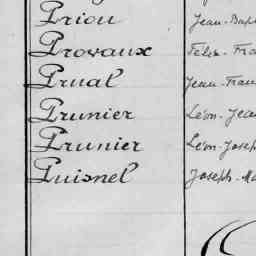 Priou Jean-Bap
Provaux Félix-Fra
Prual Jean-Fran
Prunier Léon-Jea
Prunier Léon-Josep
Puisnel Joseph-Ma